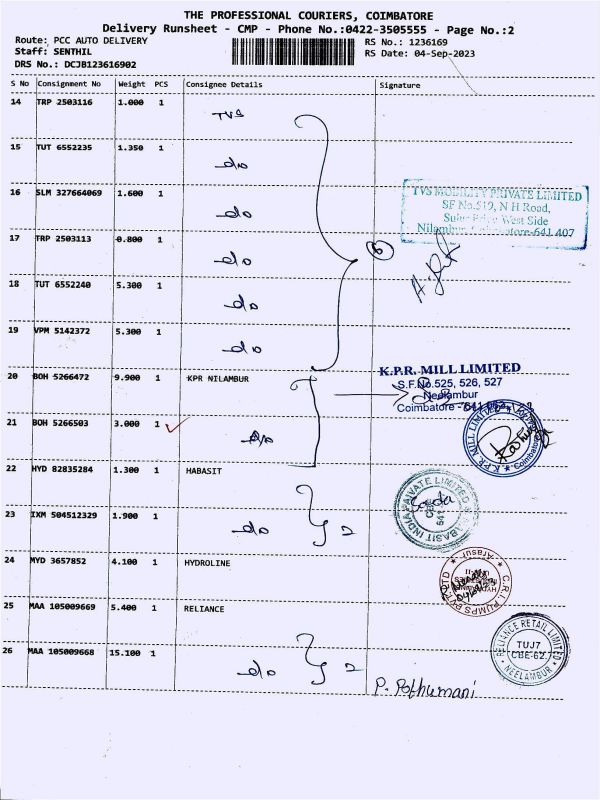 THE PROFESSIONAL COURIERS, COIMBATORE
Delivery Runsheet - CMP - Phone No.:0422-3505555 - Page No.:2
Route: PCC AUTO DELIVERY
RS No.: 1236169
Staff: SENTHIL
RS Date: 04-Sep-2023
DRS No.: DCJB123616902
S No Consignment No Weight PCS Consignee Details Signature
14 TRP 2503116 1.000 1 TVS
15 TUT 6552235 1.350 1 do
16 SLM 327664069 1.600 1 do
TVS MOBILITY PRIVATE LIMITED
SF No.519, N H Road,
West Side
Nilambur, Coimbatore-641 407
17 TRP 2503113 0.800 1 do
6
18 TUT 6552240 5.300 1 do
19 VPM 5142372 5.300 1 do
20 BOH 5266472 9.900 1 KPR NILAMBUR
K.P.R. MILL LIMITED
S.F.No.525, 526, 527
Neelambur
Coimbatore -
21 BOH 5266503 3.000 1 do
K.P.R. MILL LIMITED
Coimbatore
22 HYD 82835284 1.300 1 HABASIT
HABASIT INDIA PRIVATE LIMITED
23 IXM 504512329 1.900 1 do 2
24 MYD 3657852 4.100 1 HYDROLINE
C.R.I. PUMPS
Arasur
25 MAA 105009669 5.400 1 RELIANCE
RELIANCE RETAIL LIMITED
TUJ7
CBE-62
NEELAMBUR
26 MAA 105009668 15.100 1 do 2
P. Pothumani